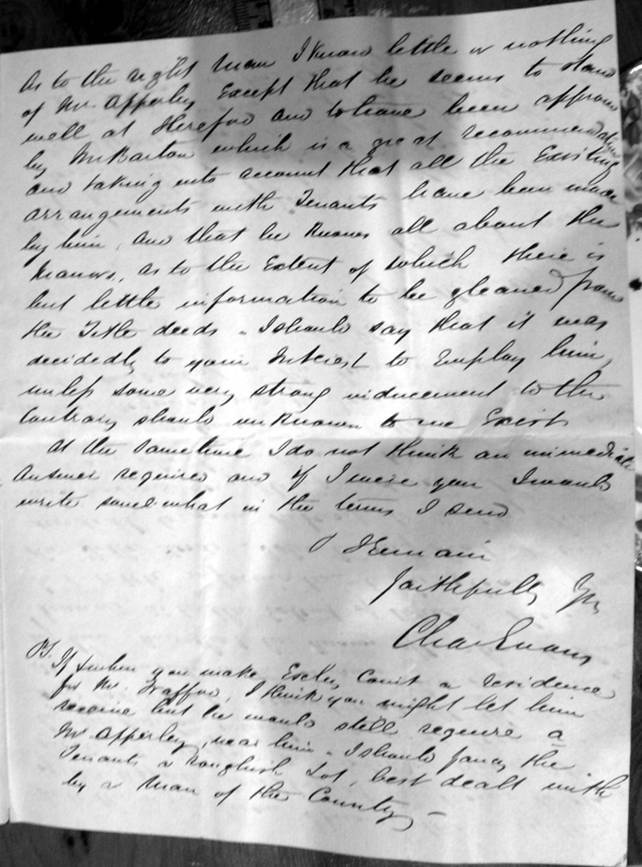 As to the right man I know little or nothing
of Mr. Apperley Except that he seems to stand
well at Hereford and to have been
by Mr Barton which is a great recommendation
and taking into account that all the Existing
arrangements with Tenants have been made
by him, and that he Knows all about the
Manors, as to the Extent of which there is
but little information to be gleaned from
the Title deeds. I should say that it was
decidedly to your Interest to Employ him,
unless some very strong inducement to the
Contrary should unknown to me Exist
At the same time I do not think an immediate
Answer required and if I were you I would
write somewhat in the terms I send
I Remain
faithfully Yrs
Chas Evans
PS. If when you make Court a residence
for Mr. Trafford, I think you might let him
receive but he would still require a
Mr Apperley near him. I should fancy the
Tenants a roughish Lot, best dealt with
by a Man of the County –